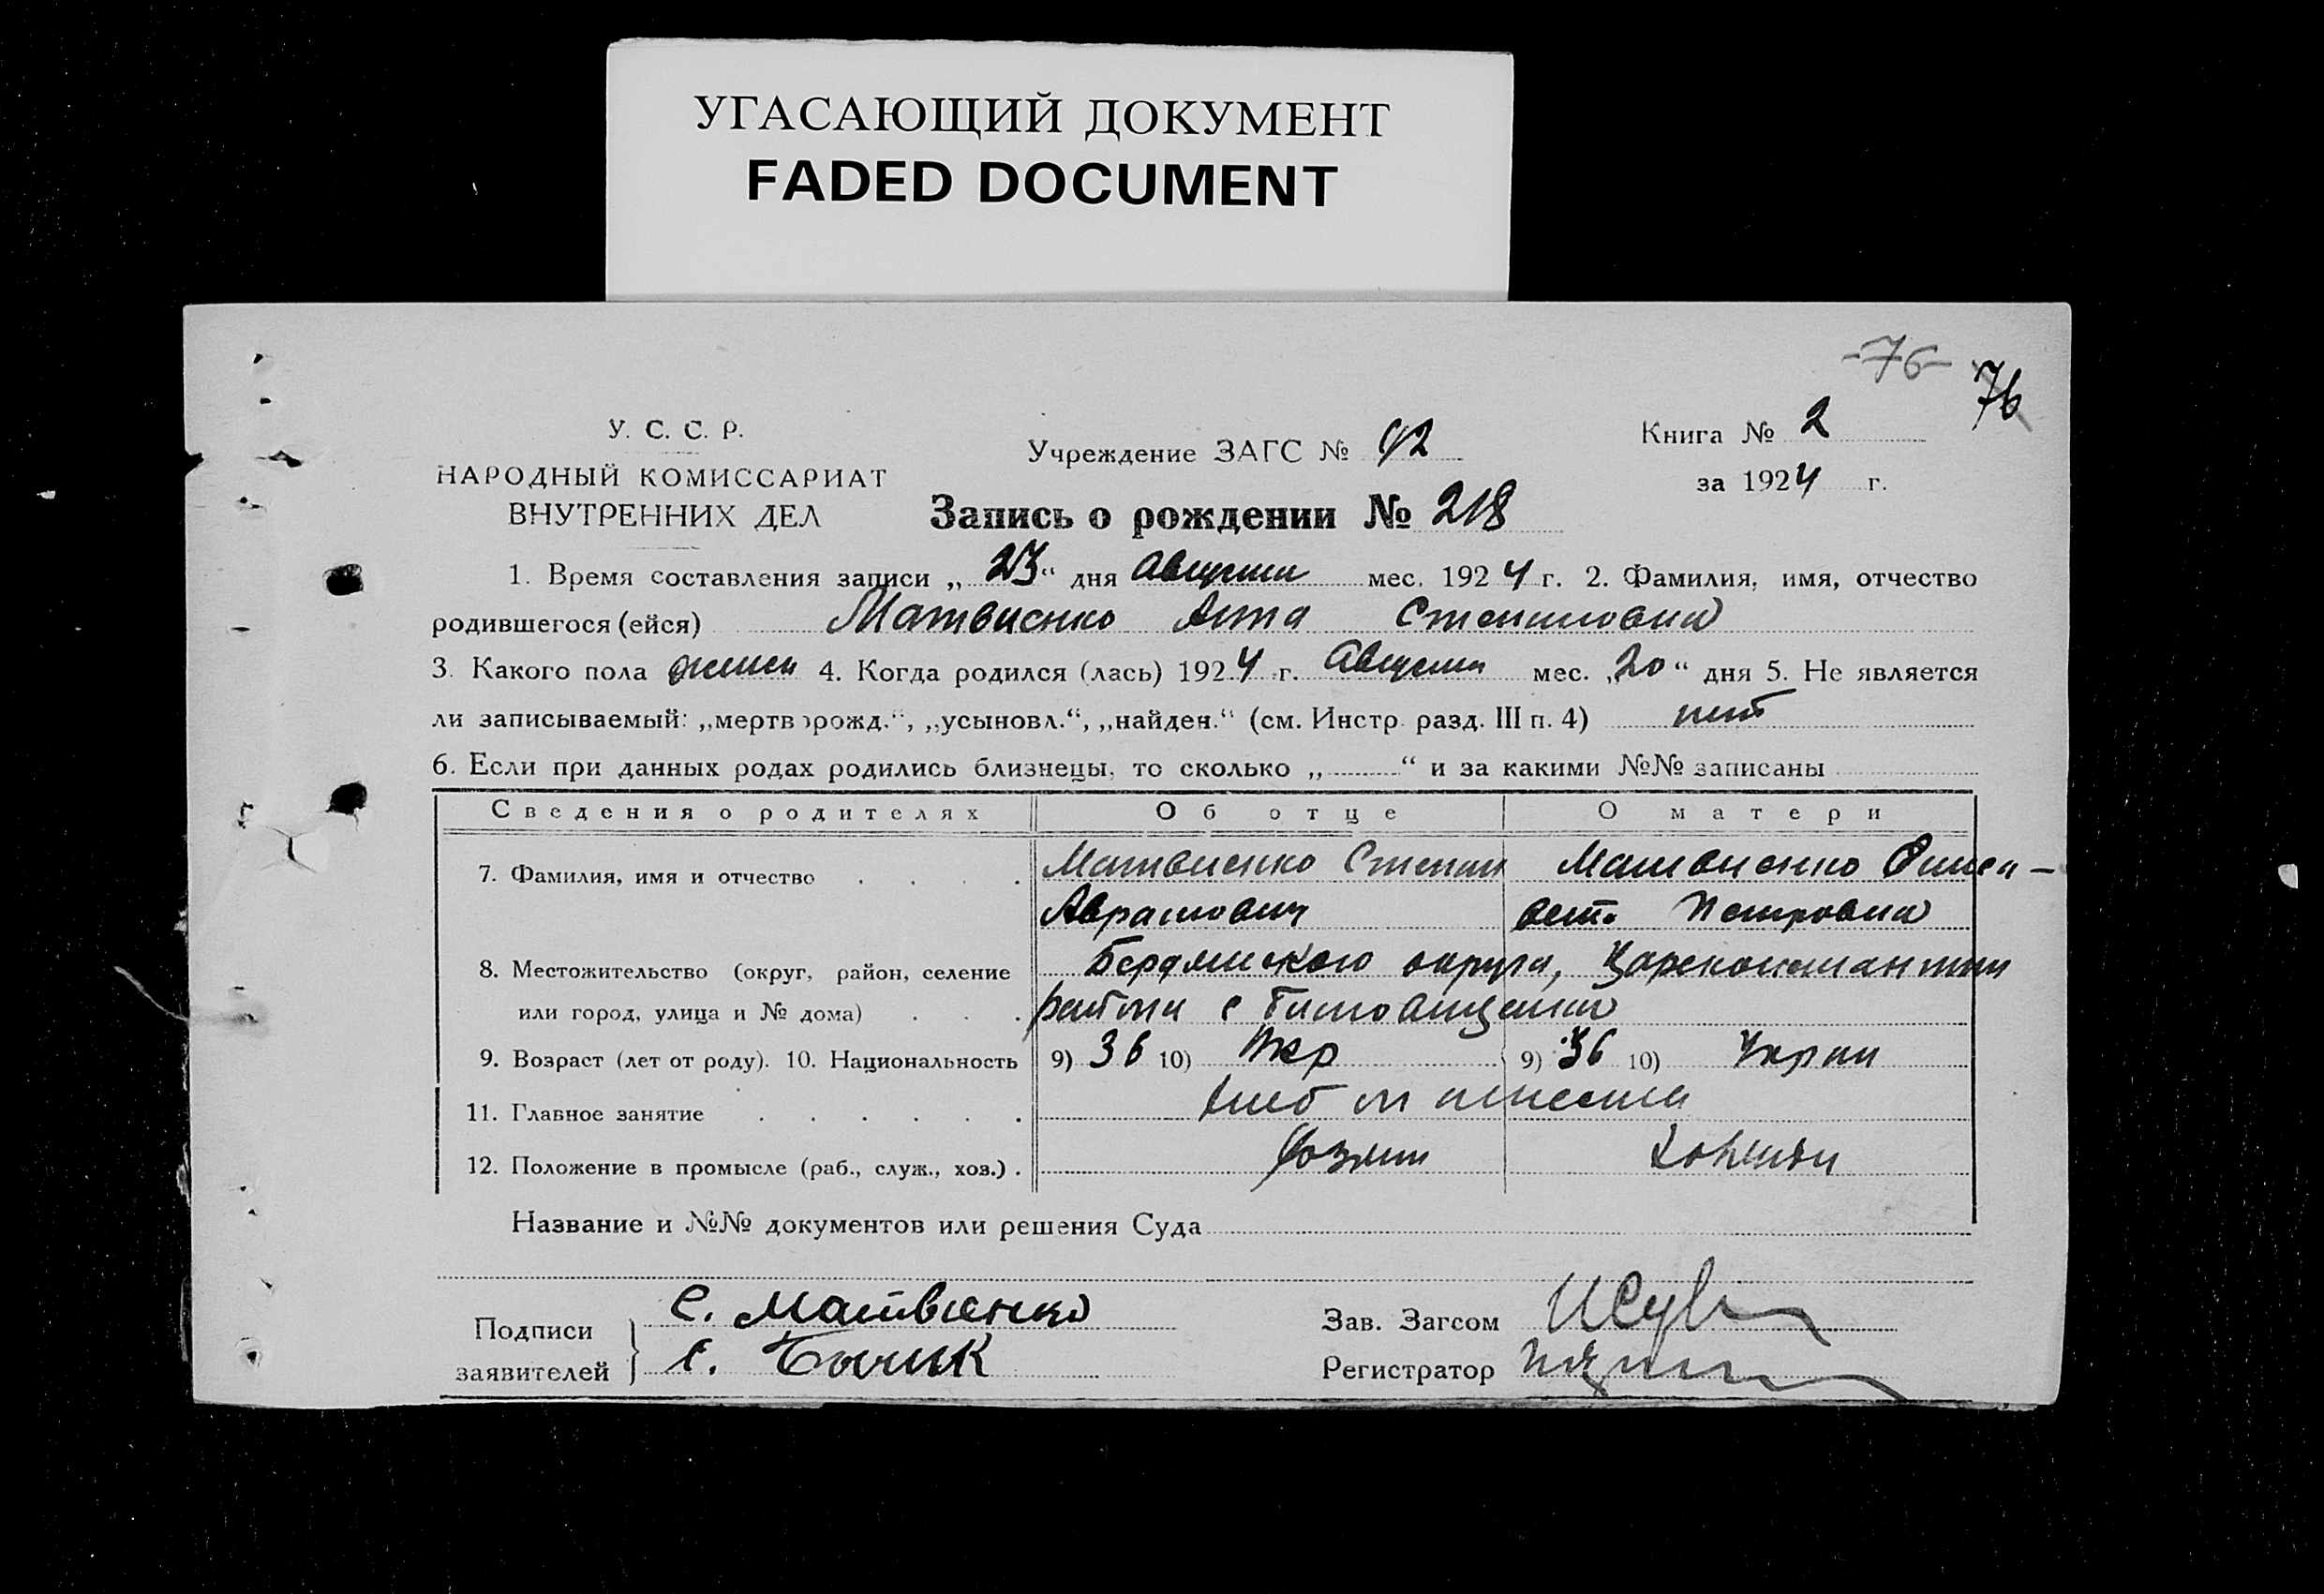 УГАСАЮЩИЙ ДОКУМЕНТ
FADED DOCUMENT
-76-
76
У. С. С. Р.
НАРОДНЫЙ КОМИССАРИАТ
ВНУТРЕННИХ ДЕЛ
Учреждение ЗАГС №
Книга № 2
за 1924 г.
Запись о рождении № 218
1. Время составления записи „23“ дня Августа мес. 1924 г. 2. Фамилия, имя, отчество
родившегося (ейся) Матвиенко Анна Степановна
3. Какого пола женск 4. Когда родился (лась) 1924 г. Августа мес. „20“ дня 5. Не является
ли записываемый: „мертворожд.“, „усыновл.“, „найден.“ (см. Инстр. разд. III п. 4) нет
6. Если при данных родах родились близнецы, то сколько „ “ и за какими №№ записаны
Сведения о родителях Об отце О матери
7. Фамилия, имя и отчество Матвиенко Степан Матвиенко
Аврамович Петровна
8. Местожительство (округ, район, селение Бердянского округа, Царековстантин
или город, улица и № дома) района с
9. Возраст (лет от роду). 10. Национальность 9) 36 10) Укр 9) 36 10) Украин
11. Главное занятие
12. Положение в промысле (раб., служ., хоз.) хозяин
Название и №№ документов или решения Суда
Подписи
заявителей
С. Матвиенко
С. Бычик
Зав. Загсом
Регистратор